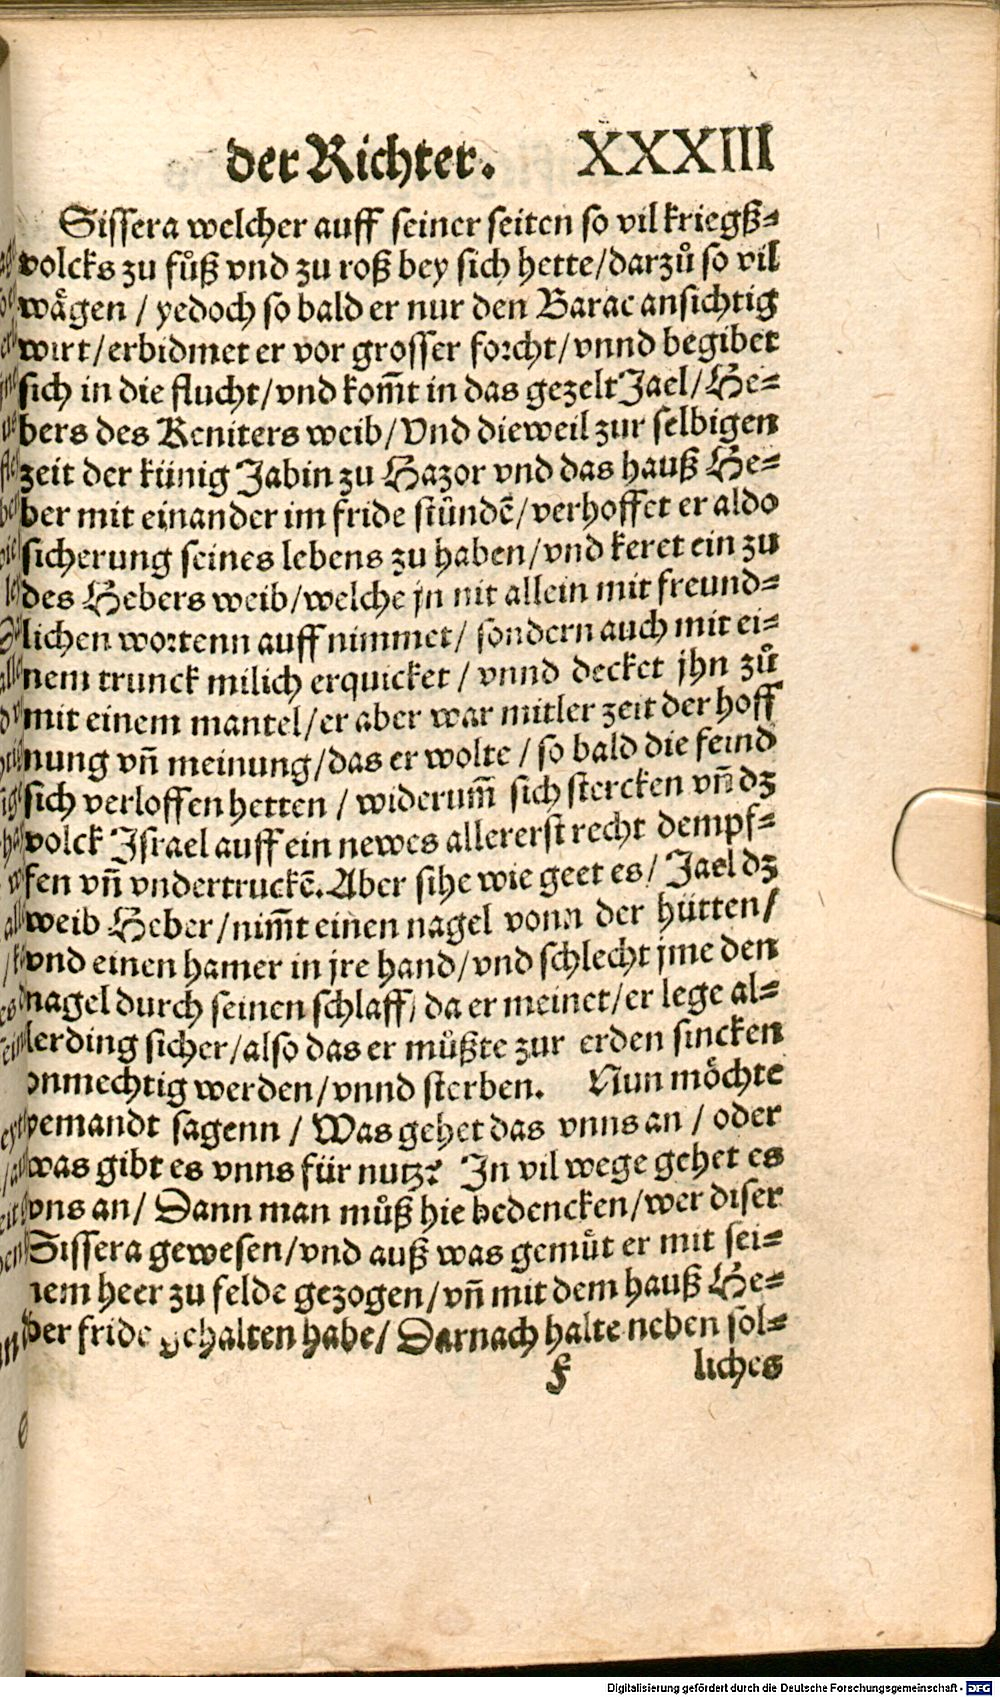 der Richter. XXXIII
Sissera welcher auff seiner seiten so vil kriegß=
volcks zu fůß vnd zu roß bey sich hette/darzů so vil
wågen / yedoch so bald er nur den Barac ansichtig
wirt/erbidmet er vor grosser forcht/vnnd begibet
sich in die flucht/vnd kom̃t in das gezelt Jael/He=
bers des Keniters weib/Vnd dieweil zur selbigen
zeit der künig Jabin zu Hazor vnd das hauß He=
ber mit einander im fride stündẽ/verhoffet er aldo
sicherung seines lebens zu haben/vnd keret ein zu
des Hebers weib/welche jn nit allein mit freund=
lichen wortenn auff nimmet/ sondern auch mit ei=
nem trunck milich erquicket / vnnd decket jhn zů
mit einem mantel/er aber war mitler zeit der hoff
nung vñ meinung/das er wolte / so bald die feind
sich verloffen hetten / widerum̃ sich stercken vñ dz
volck Israel auff ein newes allererst recht dempf=
fen vñ vndertruckẽ. Aber sihe wie geet es/ Jael dz
weib Heber/nim̃t einen nagel vonn der hütten/
vnd einen hamer in jre hand/vnd schlecht jme den
nagel durch seinen schlaff/ da er meinet/er lege al=
lerding sicher/also das er můßte zur erden sincken
onmechtig werden/vnnd sterben. Nun möchte
yemandt sagenn / Was gehet das vnns an / oder
was gibt es vnns für nutz? In vil wege gehet es
vns an/ Dann man můß hie bedencken/wer diser
Sissera gewesen/vnd auß was gemüt er mit sei=
nem heer zu felde gezogen/vñ mit dem hauß He=
ber fride gehalten habe/ Darnach halte neben sol=
f liches
Digitalisierung gefördert durch die Deutsche Forschungsgemeinschaft - DFG